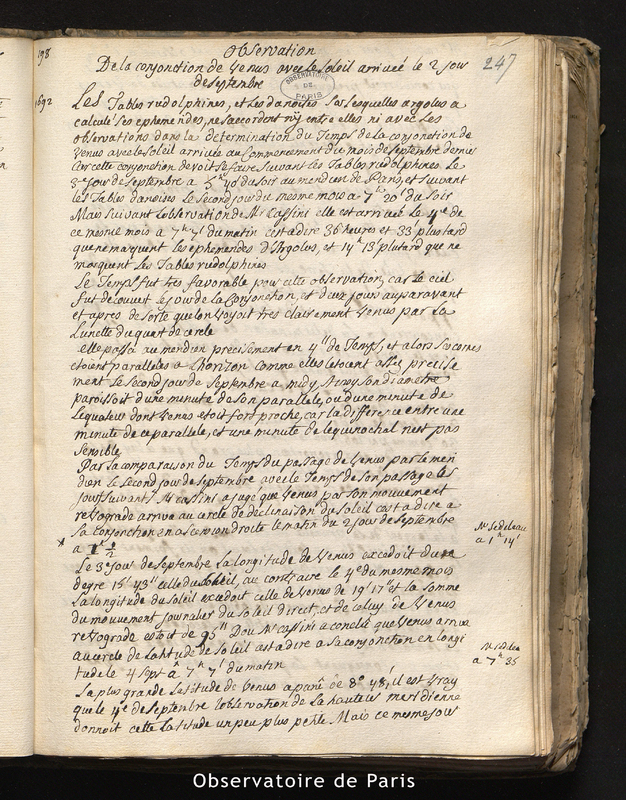 198
247
Observation
De la conjonction de Venus avec le Soleil arrivée le 2 jour
de septembre
OBSERVATOIRE DE PARIS
1692
Les Tables rudolphines, et les danoises sur lesquelles argolus a
calculé ses ephemerides, ne saccordent n'y entre elles ni avec Les
observations dans la determination du Temps de la conjonction de
Venus avec le Soleil arrivée au Commencement du mois de septembre
Car cette conjonction devoit se faire Suivant les Tables rudolphines Le
3e jour de septembre a 5h 40' du soir au meridien de Paris, et suivant
les Tables danoises le Second jour du mesme mois a 7h 20' du Soir
Mais Suivant l'observation de Mr Cassini elle est arrivée Le 4e de
ce mesme mois a 7h 7' du matin cest a dire 36 heures et 33 plus tard
que ne marquent les ephemerides d'Argolus, et 14h 13 plutard que ne
marquent Les Tables rudolphines
Le Temps fut tres favorable pour cette observation, car le ciel
fut decouvert le jour de la Conjonction, et deux jours auparavant
et apres de sorte que lon voyoit tres clairement Venus par la
Lunette du quart de cercle
elle passa au meridien precisement en 4'' de Temps, et alors ses cornes
etoient paralleles a l'horizon comme elles etoient assez precise
ment le Second jour de Septembre a midy et son diametre
paroissoit d'une minute de son parallele, ou d'une minute de
Lequateur dont Venus etoit fort proche, car la difference entre une
minute de ce parallele, et une minute de lequinoctial n'est pas
sensible
Par la comparaison du Temps du passage de Venus par le meri
dien le Second jour de septembre avec le Temps de son passage les
jours suivants Mr Cassini a jugé que Venus par son mouvement
retrograde arriva au cercle de declinaison du Soleil cest a dire a
Sa conjonction en ascension droite le matin du 2 jour de septembre
a 1h 1/2
Mr Sedileau
a 1h 14'
Le 3e jour de septembre la longitude de Venus excedoit d'un
degre 15' 43'' celle du Soleil, au contraire le 4e du mesme mois
La longitude du Soleil excedoit celle de Venus de 19' 17'' et la Somme
du mouvement journalier du Soleil direct, et de celuy de Venus
retrograde estoit de 95'' Dou Mr Cassini a conclu que Venus arriva
au cercle de Latitude du Soleil cest a dire a sa conjonction en longi
tude le 4 sept a 7h 7' du matin
Mr Sedileau
a 7h 35
La plus grande Latitude de Venus a paru de 8° 48', il est vray
que le 4e de septembre l'observation de la hauteur meridienne
donnoit cette Latitude un peu plus petite Mais ce mesme jour
Observatoire de Paris